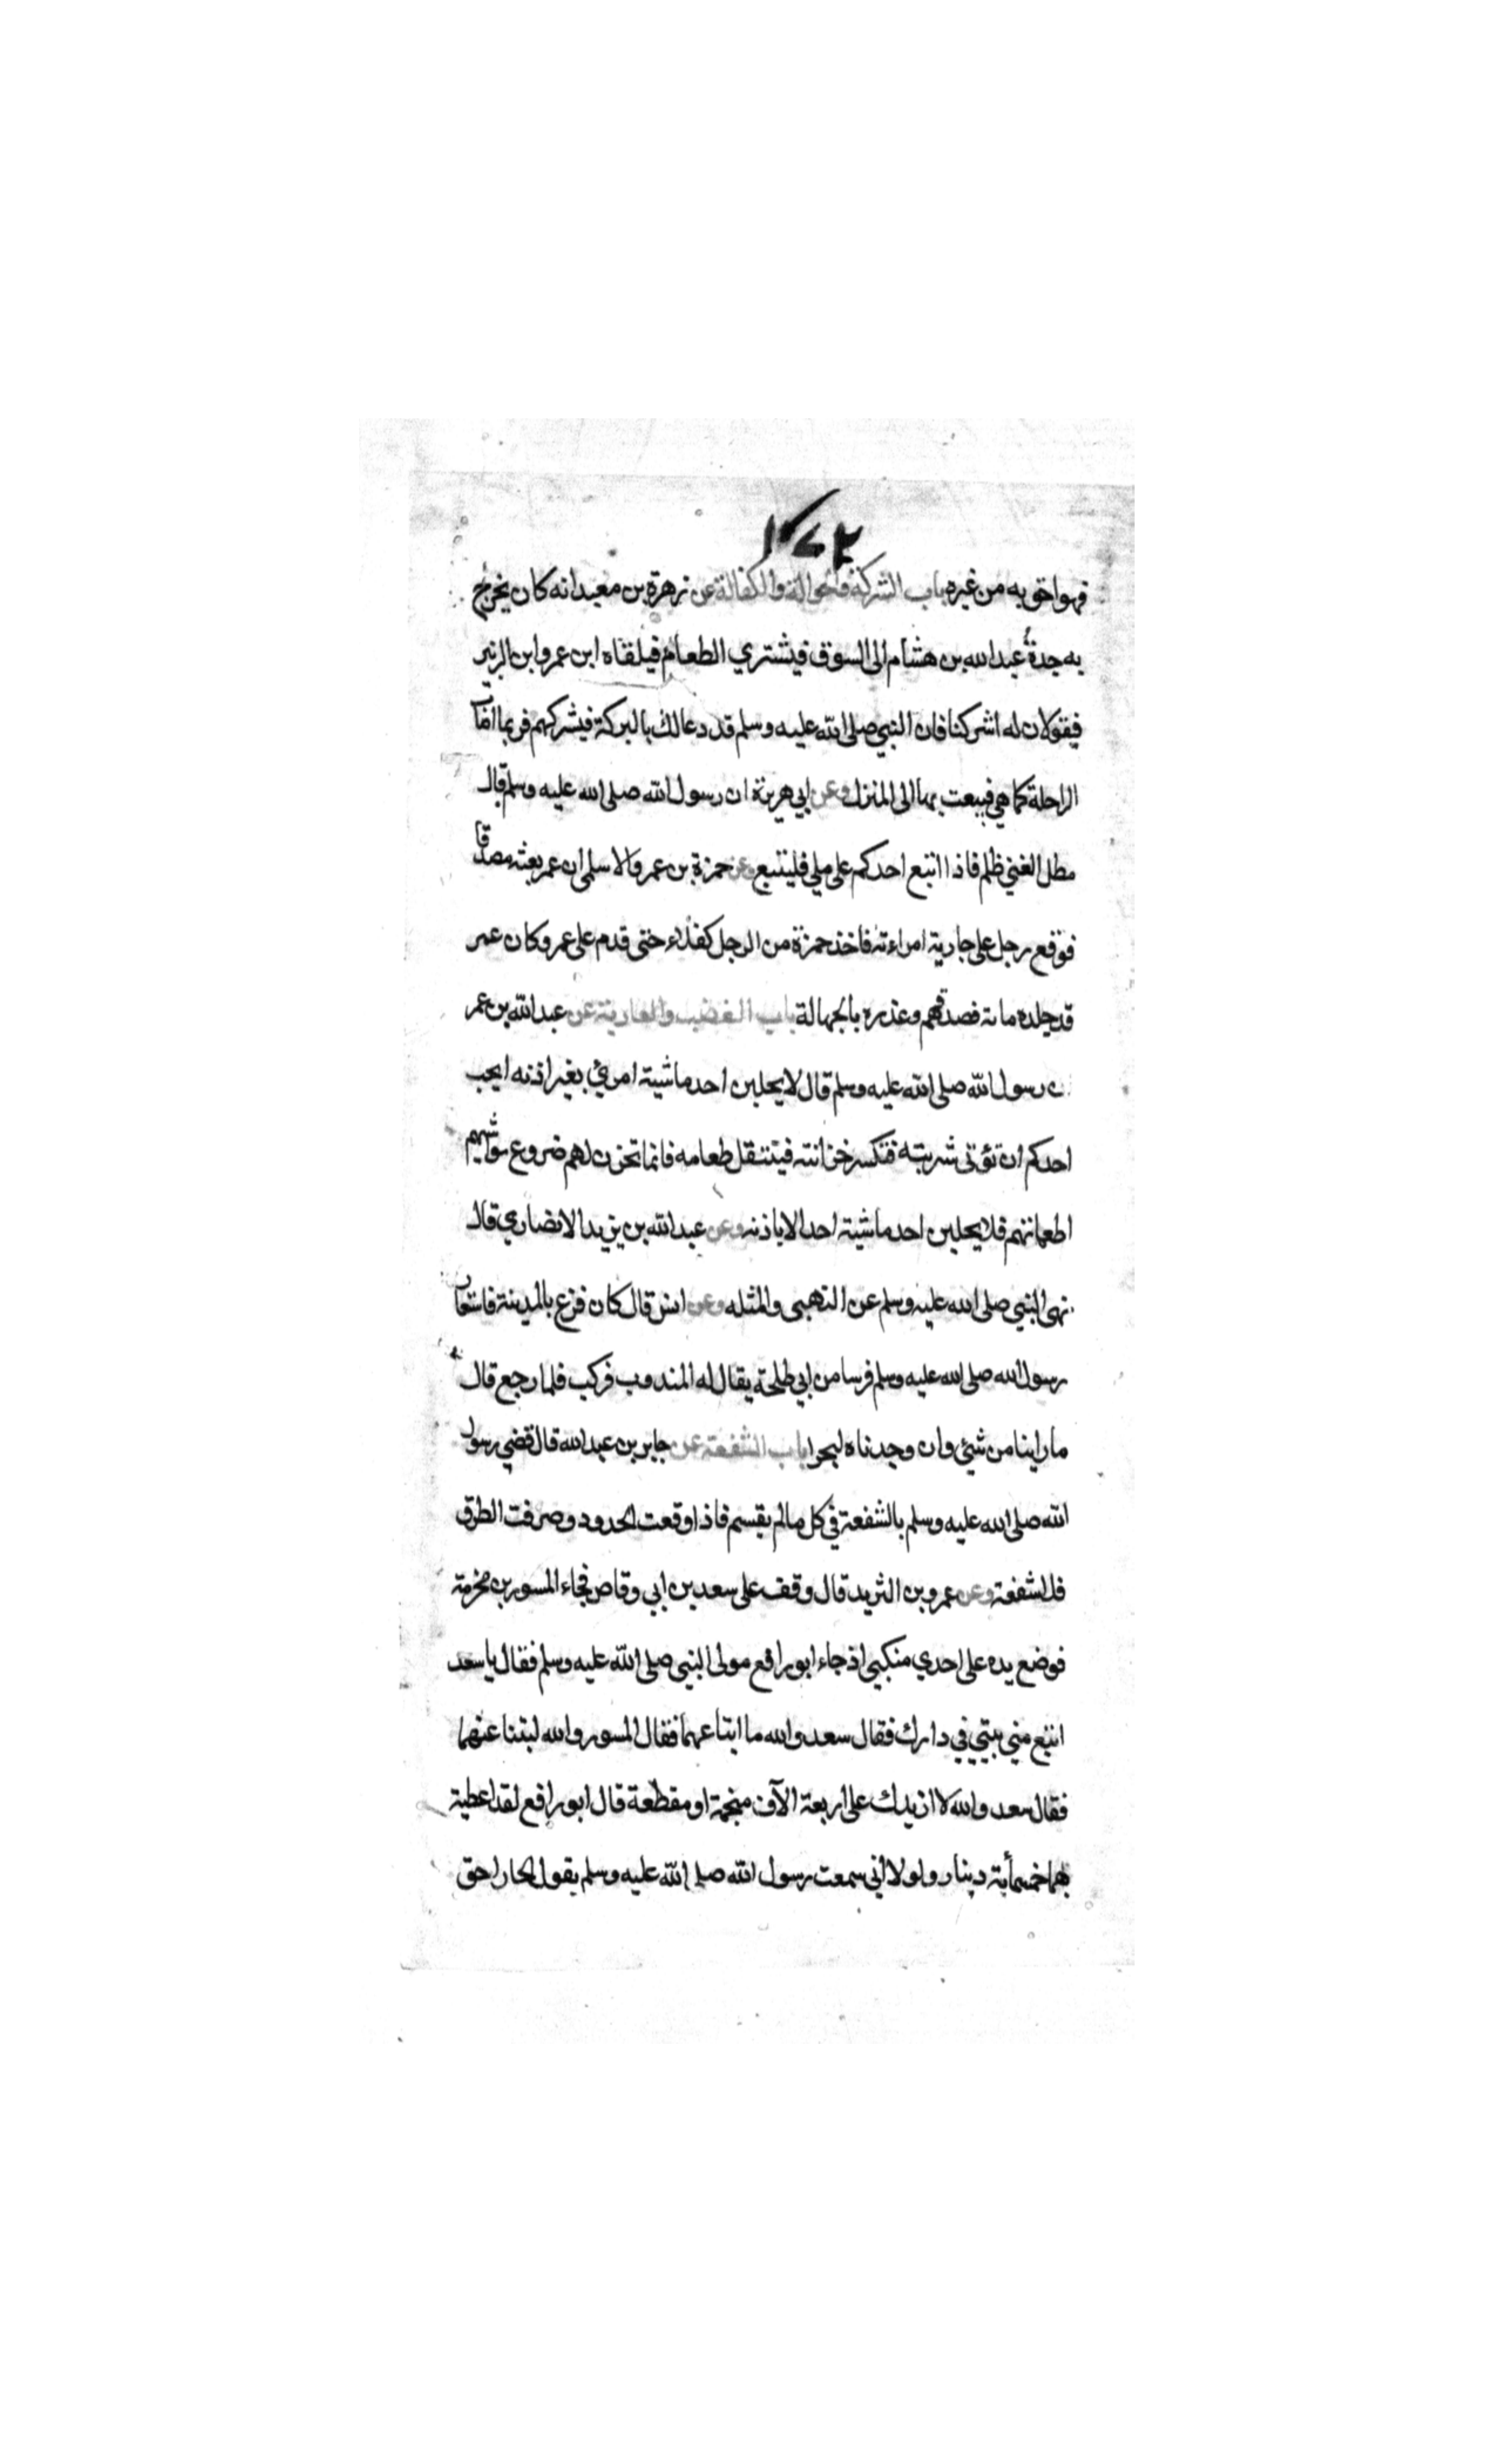 ١٧٢
فهو احق به من غيره باب الشركة والحوالة والكفالة عن زهرة بن معبد انه كان يخرج
به جدة عبد الله بن هشام الى السوق فيشتري الطعام فيلقاه ابن عمر وابن الزبير
فيقولان له اشركنا فان النبي صلى الله عليه وسلم قد دعا لك بالبركة فيشركهم فربما اصاب
الراحلة كما هي فيبعت بها الى المنزل وعن ابي هريرة ان رسول الله صلى الله عليه وسلم قال
مطل الغني ظلم فاذا اتبع احدكم على ملي فليتبع وعن حمزة بن عمرو الاسلمي ان عمر بعثه مصدقا
فوقع رجل على جارية امراءته فاخذ حمزة من الرجل كفلاء حتى قدم على عمر وكان عمر
قد جلده ماىة فصدقهم وعذره بالجهالة باب الغصب والعارية عن عبد الله بن عمر
ن رسول الله صلى الله عليه وسلم قال لا يحلبن احد ماشية امرئ بغير اذنه ايحب
احدكم ان تؤتى شربته فتكسر خزانته فينتقل طعامه فانما تخزن لهم ضروع مواشيهم
اطعماتهم فلا يحلبن احد ماشية احد الا باذنه وعن عبد الله بن يزيد الانصاري قال
نهى النبي صلى الله عليه وسلم عن النهبى والمثله وعن انس قال كان فزع بالمدينة فاستعار
رسول الله صلى الله عليه وسلم فرسا من ابي طلحة يقال له المندوب فركب فلما رجع قال
ما راينا من شيئ وان وجدناه لبحرا باب الشفعة عن جابر بن عبد الله قال قضي رسول
الله صلى الله عليه وسلم بالشفعة في كل مالم يقسم فاذا وقعت الحدود وصرفت الطرق
فلا شفعة وعن عمرو بن الثريد قال وقف على سعد بن ابي وقاص فجاء المسور بن مخرمة
فوضع يده على احدي منكبي اذ جاء ابو رافع مولى النبي صلى الله عليه وسلم فقال يا سعد
ابتع مني بيتي في دارك فقال سعد والله ما ابتاعهما فقال المسور والله لتبتاعنهما
فقال سعد والله لا ازيدك على اربعة الآف منجمة او مقطعة قال ابو رافع لقد اعطية
بهما خمسمأية دينار ولولا اني سمعت رسول الله صلى الله عليه وسلم يقول الجار احق